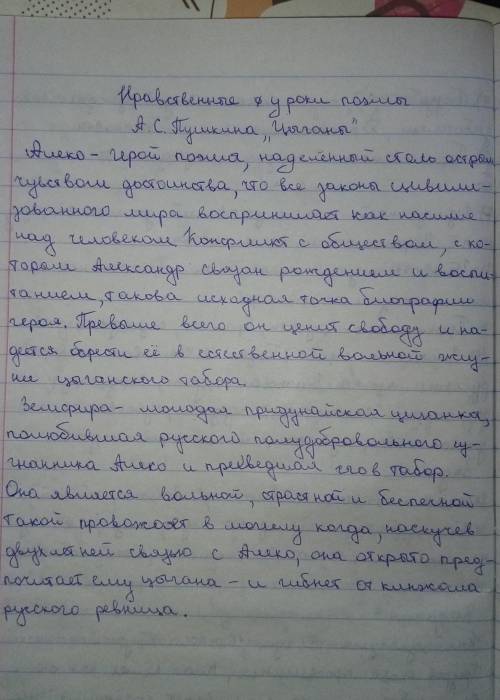 Нравственные уроки поэмы
А.С. Пушкина „Цыганы"
Алеко - герой поэма, наделённый столь острым
чувством достоинства, что все законы цивили-
зованного мира воспринимает как насилие
над человеком Конфликт с обществом, с ко-
торым Александр связан рождением и воспи-
танием, такова исходная точка биографии
героя. Превыше всего он ценит свободу и на-
деется обрести её в естественной вольной жизни
цыганского табора.
Земфира - молодая придунайская цыганка,
полюбившая русского полудобровольного из-
гнанника Алеко и приведшая его в табор.
Она является вольной, страстной и беспечной
такой провожает в могилу когда, наскучев
двухлетней связью с Алеко, она открыто пред-
почитает ему цыгана - и гибнет от кинжала
русского ревнивца.